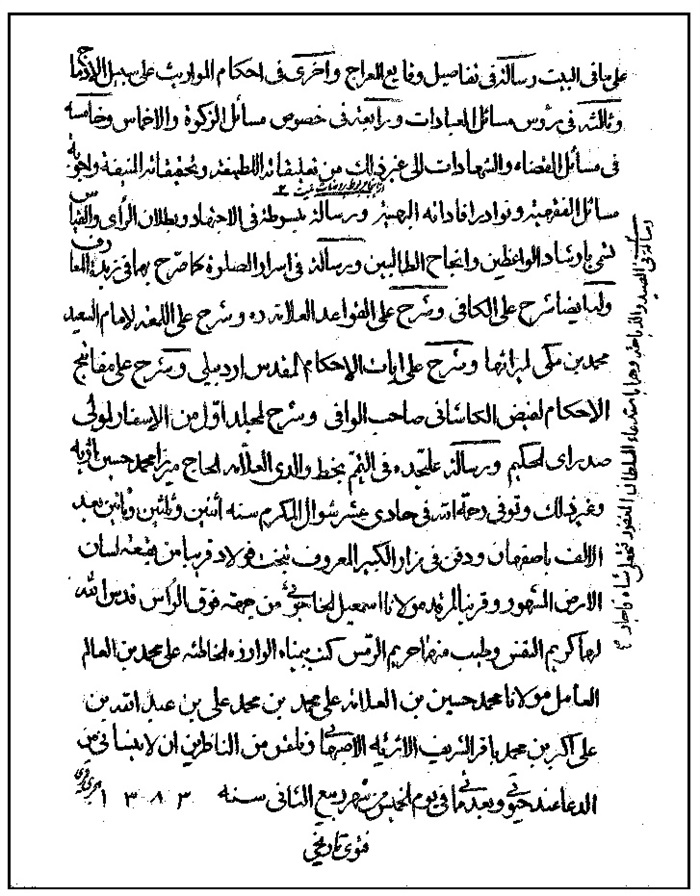 على ما فى البيت رسالة فى تفاصيل وقايع المعراج واخرى فى احكام المواريث على سبيل الاندماج
وثالثة فى رؤس مسائل العبادات ورابعة فى خصوص مسائل الزكوة والاخماس وخامسه
فى مسائل القضاء والشهادات الى غير ذلك من تعليقاته اللطيفة وتحقيقاته المنيفة واجوبة
مسائل الفقهية ونوادر افاداته البهية ورسالة مبسوطة فى الاجتهاد وبطلان الرأى والقياس
تسمى بارشاد الواعظين وانجاح الطالبين ورسالة فى اسرار الصلوة كما صرح بها فى زبدة المعارف
وله ايضا شرح على الكافى وشرح على القواعد العلامة ره وشرح على اللمعه لامام السعيد
محمد بن مكى لم يرا مثلها وشرح على ايات الاحكام لمقدس اردبيلى وشرح على مفاتيح
الاحكام لفيض الكاشانى صاحب الوافى وشرح لمجلد اول من الاسفار لمولى
صدراى الحكيم ورسالة عليحده فى التيمم بخط والدى العلامه الحاج ميرزا محمد حسين
وغير ذلك وتوفى رحمة الله فى حادى عشر شوال المكرم سنه أثنين وثلثين ومأتين بعد
الالف باصفهان ودفن فى مزار الكبير المعروف بتخت فولاد قريبا من بقعة لسان
الارض المشهور وقرب المرقد مولانا اسمعيل الخاجوئى من جهة فوق الرأس قدس الله
لهما كريم النفس وطيب منهما حريم الرمس كتب بيمناه الوازره الخاطئه على محمد بن العالم
العامل مولانا محمد حسين بن العلامه على محمد بن محمد على بن عبد الله بن
على اكبر بن محمد باقر الشريف الاصفهانى وتلمس من الناظرين ان لا ينسانى من
الدعا عند حيوتى وبعد مماتى فى يوم الخميس من شهر ربيع الثانى سنه ١٣٨٣
فتوى تاريخي
ورسالة فى الصيد والذباحة وهى باستدعاء السلطان المغفور فتحعلى شاه قاجار